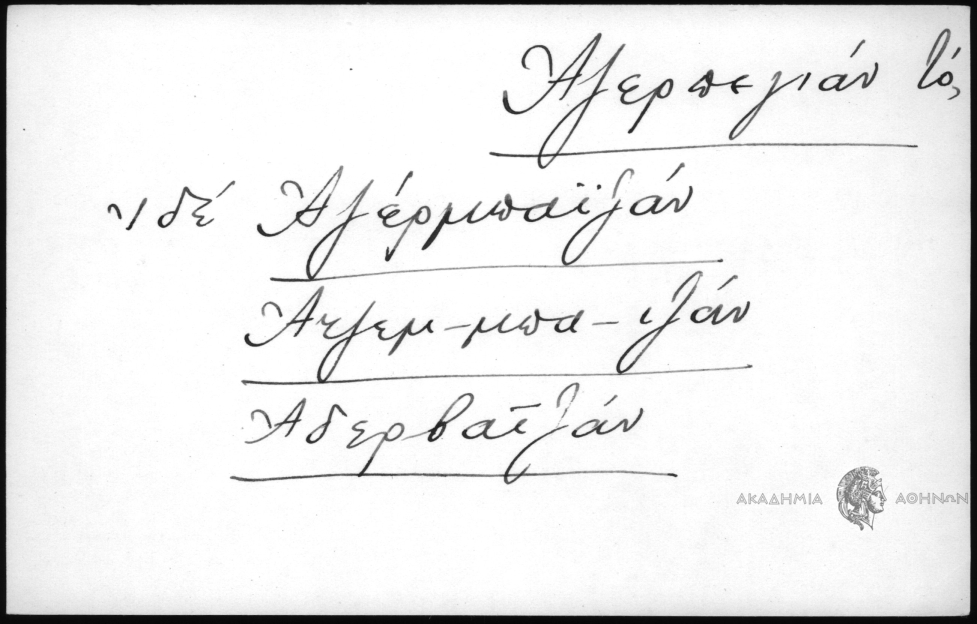 Ἀζερπεγιάν τό,
ἰδέ Ἀζέρμπαϊζάν
Ἀτζεμ-μπα-ιζάν
Ἀδερβαϊζάν
ΑΚΑΔΗΜΙΑ ΑΘΗΝΩΝ